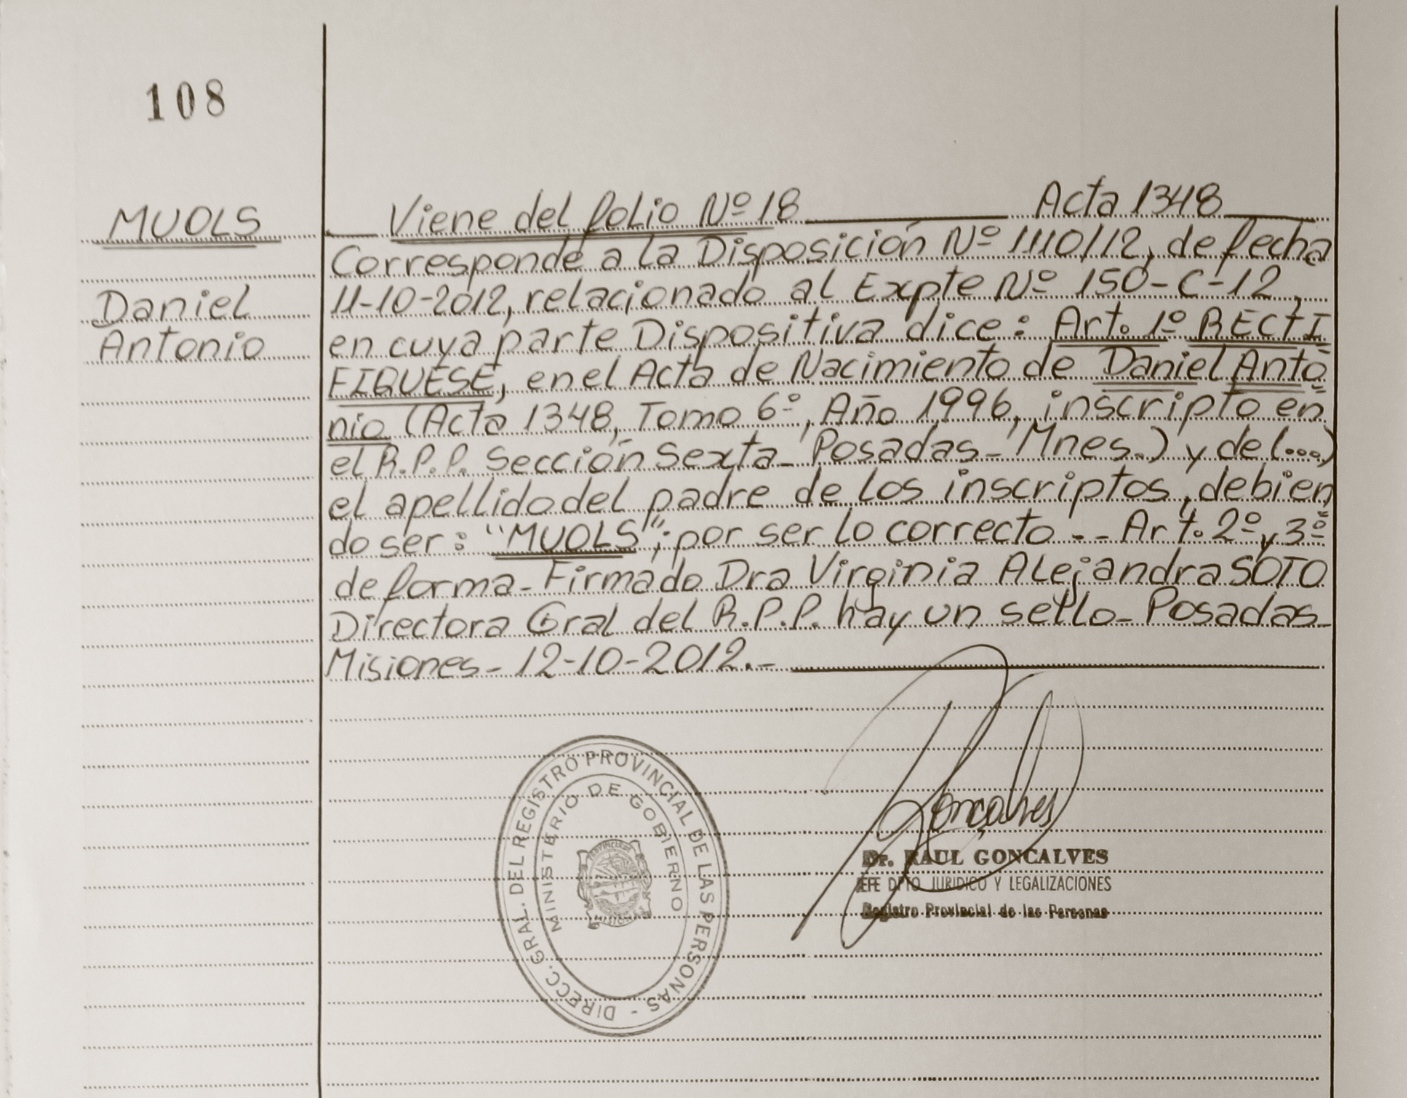 108
MUOLS
Daniel
Antonio
Viene del folio Nº 18 Acta 1348
Corresponde a la Disposición Nº 1110/12, de fecha
11-10-2012, relacionado al Expte Nº 150-C-12,
en cuya parte Dispositiva dice: Art. 1º RECTI
FIQUESE, en el Acta de Nacimiento de Daniel Anto
nio (Acta 1348, Tomo 6º, Año 1996, inscripto en
el R.P.P. Sección Sexta - Posadas - Mnes.) y de (...)
el apellido del padre de los inscriptos, debien
do ser: "MUOLS"; por ser lo correcto.- Art. 2º y 3º
de forma - Firmado Dra Virginia Alejandra SOTO
Directora Gral del R.P.P. hay un sello - Posadas -
Misiones - 12-10-2012.-
DIRECC. GRAL. DEL REGISTRO PROVINCIAL DE LAS PERSONAS -
MINISTERIO DE GOBIERNO
Goncalves
Dr. RAUL GONCALVES
JEFE DPTO JURIDICO Y LEGALIZACIONES
Registro Provincial de las Personas